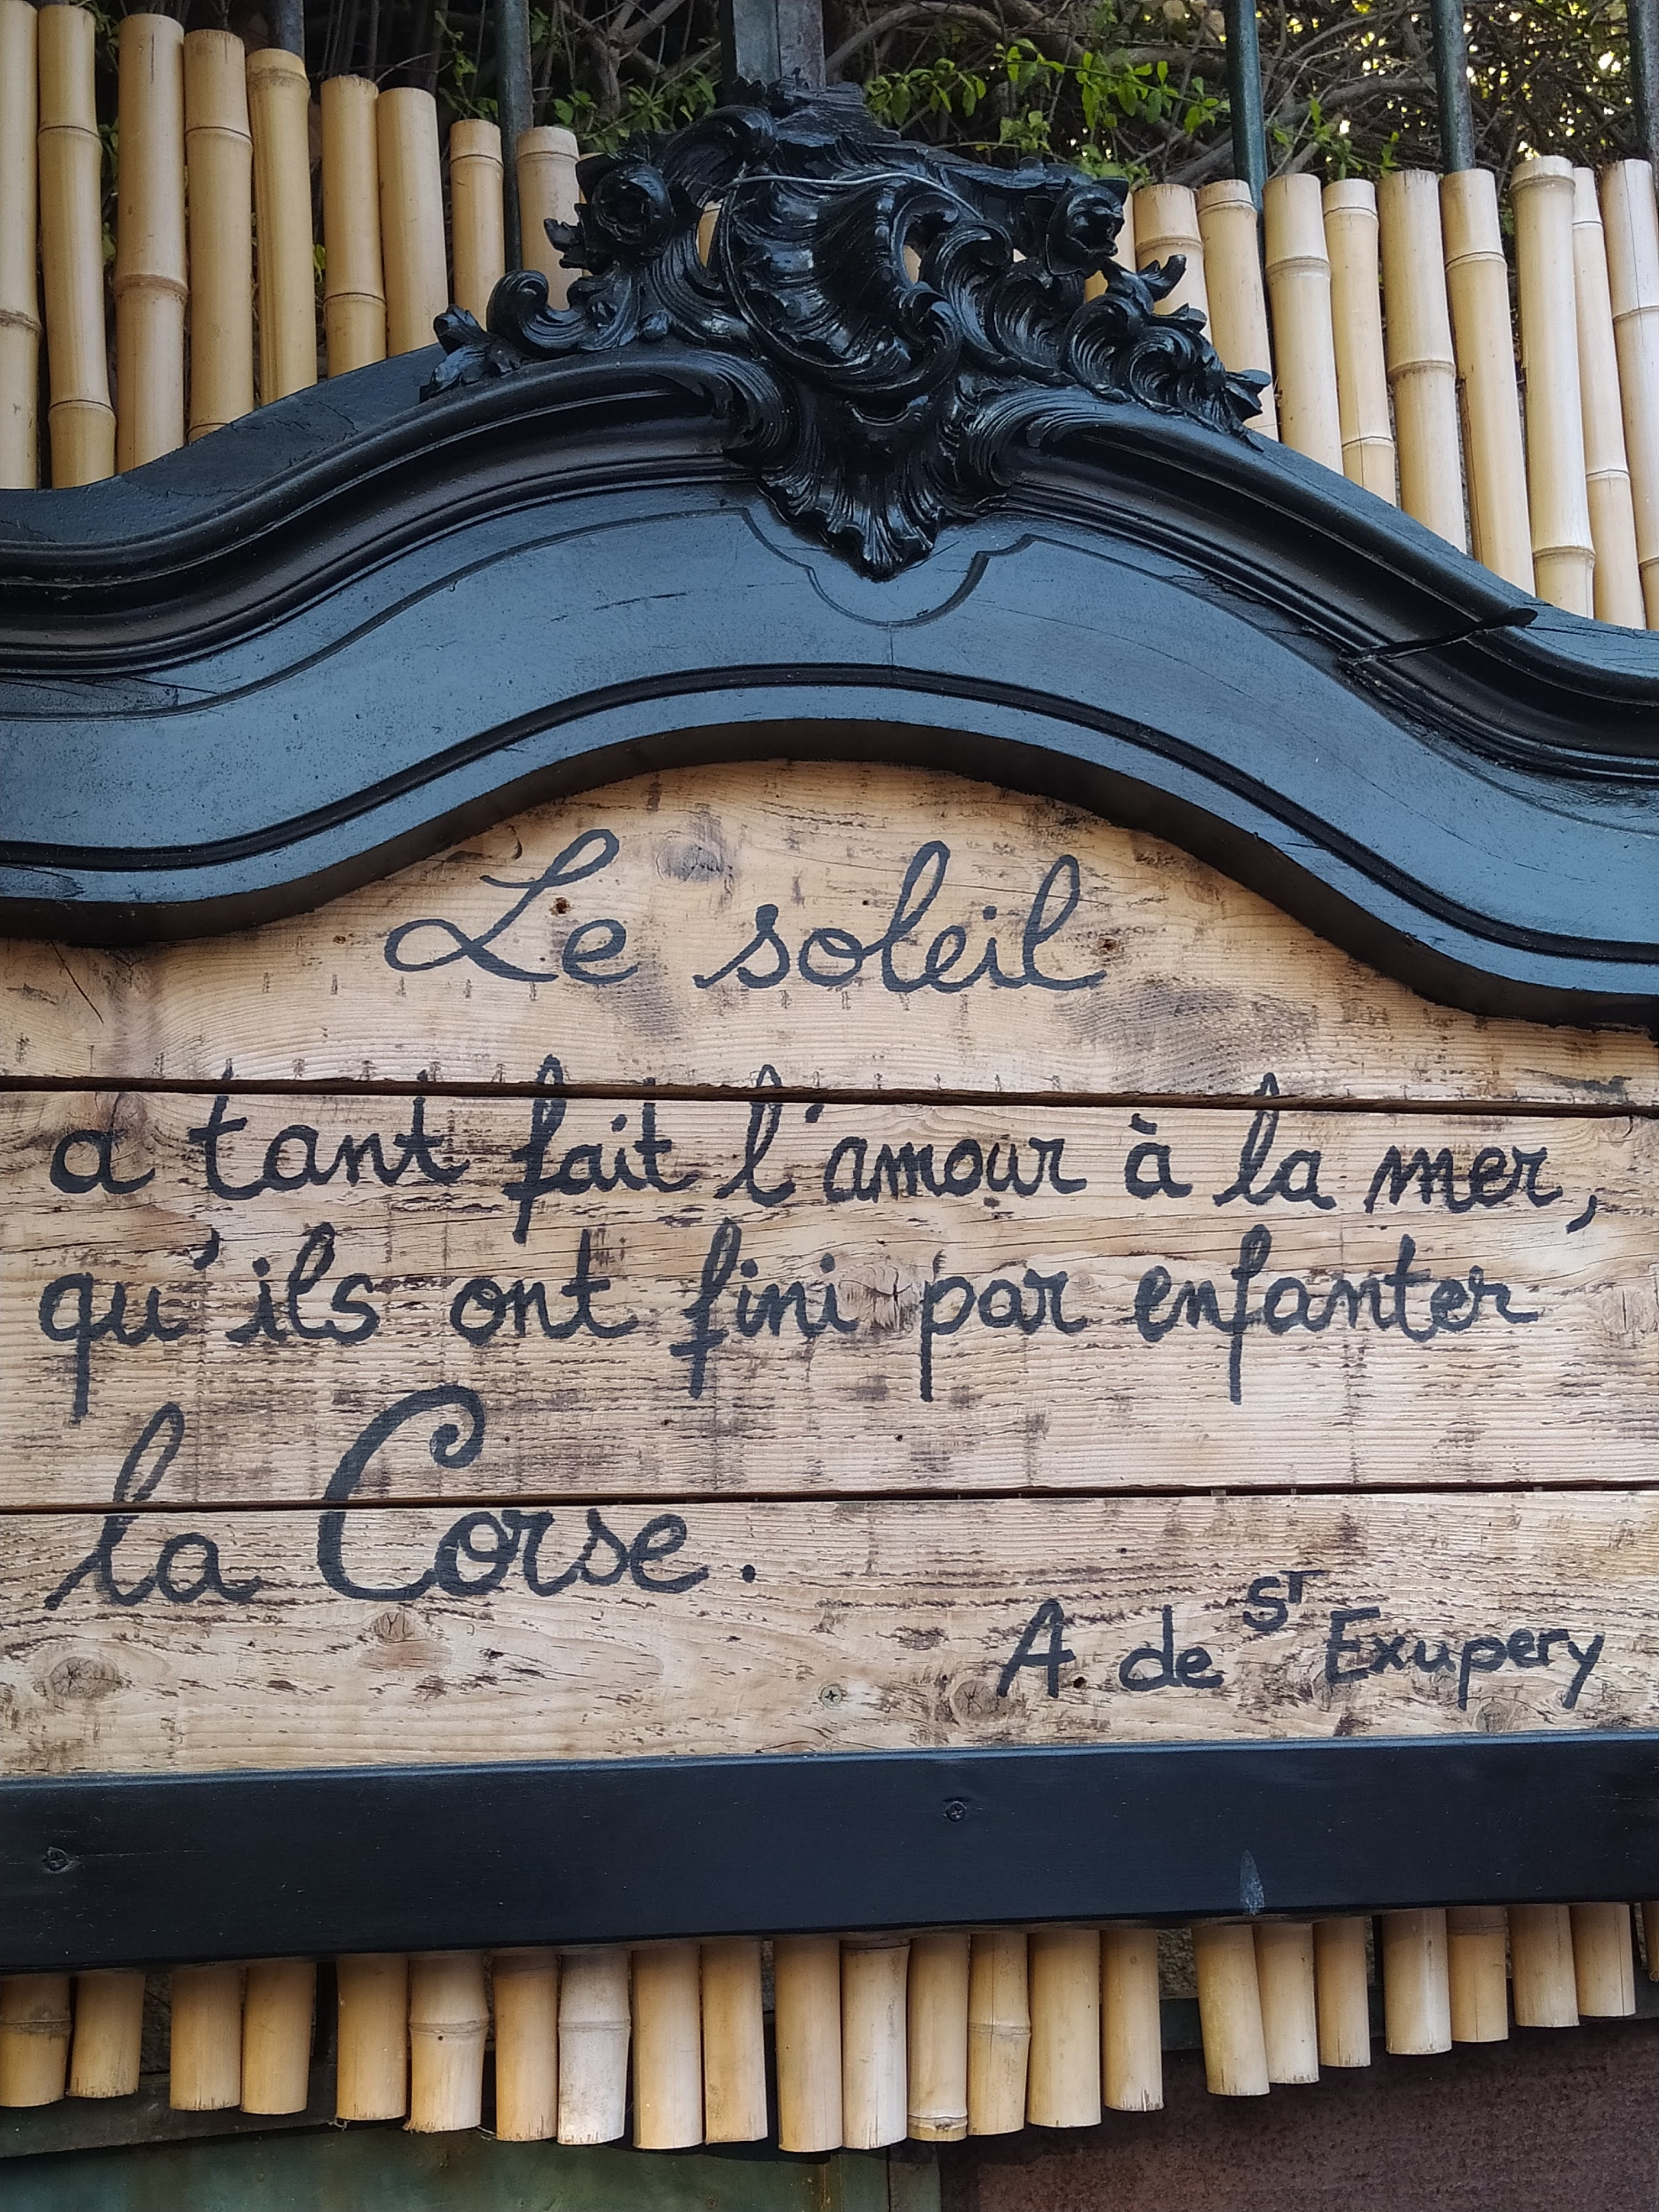 Le soleil
a tant fait l'amour à la mer,
qu'ils ont fini par enfanter
la Corse.
A de ST Exupery